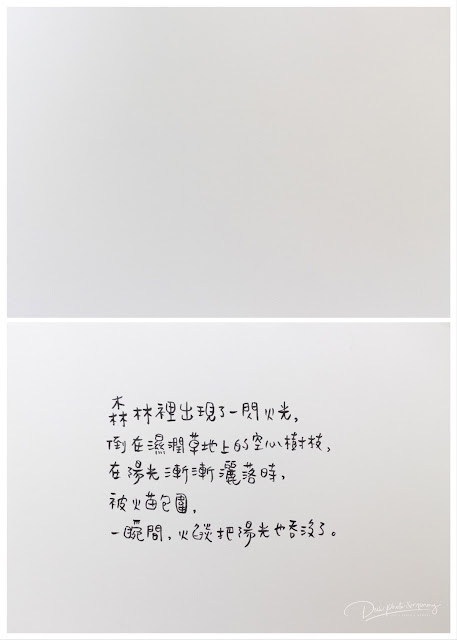 森林裡出現了一閃火光,
倒在濕潤草地上的空心樹枝,
在陽光漸漸灑落時,
被火苗包圍,
一瞬間,火燄把陽光也吞沒了。